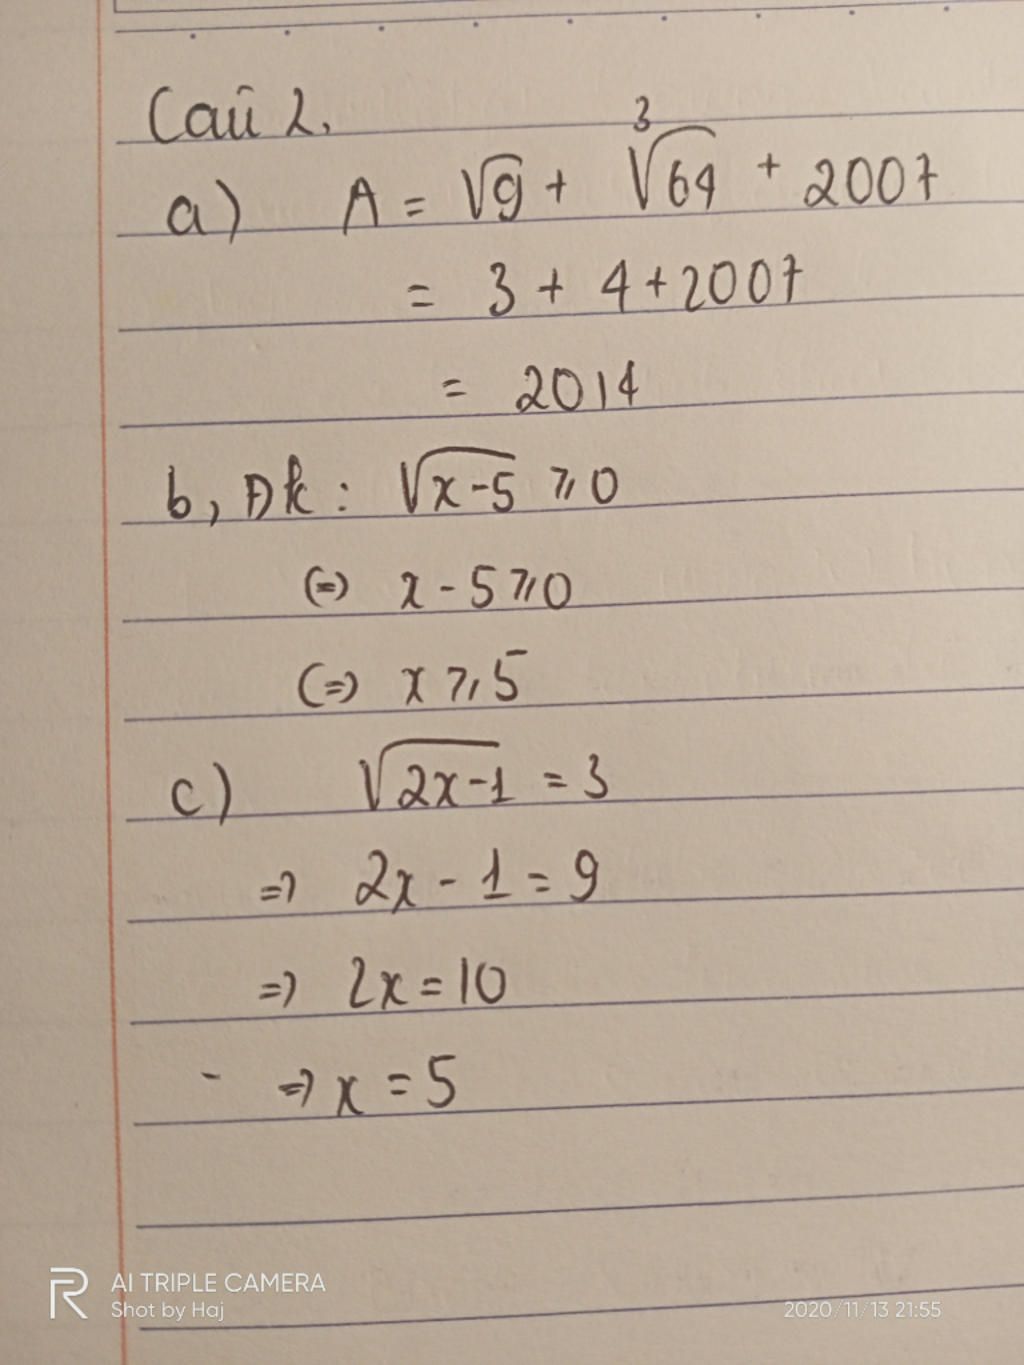 Câu 2.
a) A = √9 + ∛64 + 2007
= 3 + 4 + 2007
= 2014
b, Đk: √(x-5) ≥ 0
(=) x - 5 ≥ 0
(=) x ≥ 5
c) √(2x-1) = 3
=) 2x - 1 = 9
=) 2x = 10
- =) x = 5
AI TRIPLE CAMERA
Shot by Haj
2020/11/13 21:55